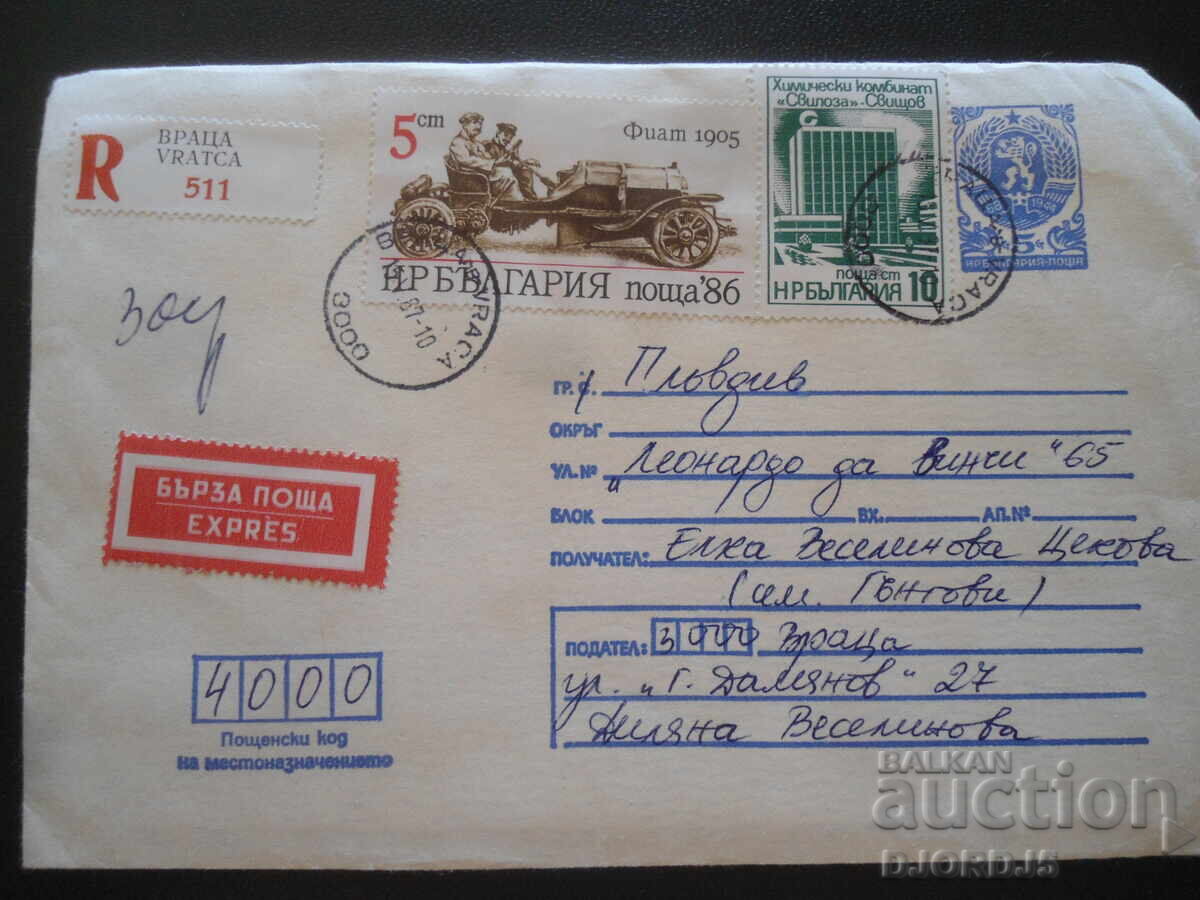 R
ВРАЦА
VRATCA
511
5 ст
Фиат 1905
НР БЪЛГАРИЯ поща '86
Химически комбинат
«Свилоза»-Свищов
поща ст
НР БЪЛГАРИЯ 10
1944
5 ст
НР БЪЛГАРИЯ·ПОЩА
VRACA
87-10
3000
VRACA
БЪРЗА ПОЩА
EXPRÈS
ГР. С. Пловдив
ОКРЪГ
УЛ. № „Леонардо да Винчи" 65
БЛОК ВХ. АП. №
ПОЛУЧАТЕЛ: Елка Веселинова Цекова
(сем. Гънгови)
ПОДАТЕЛ: 3000 Враца
ул. „Г. Дамянов" 27
Диляна Веселинова
4000
Пощенски код
на местоназначението
BALKAN
auction
DJORDJ5